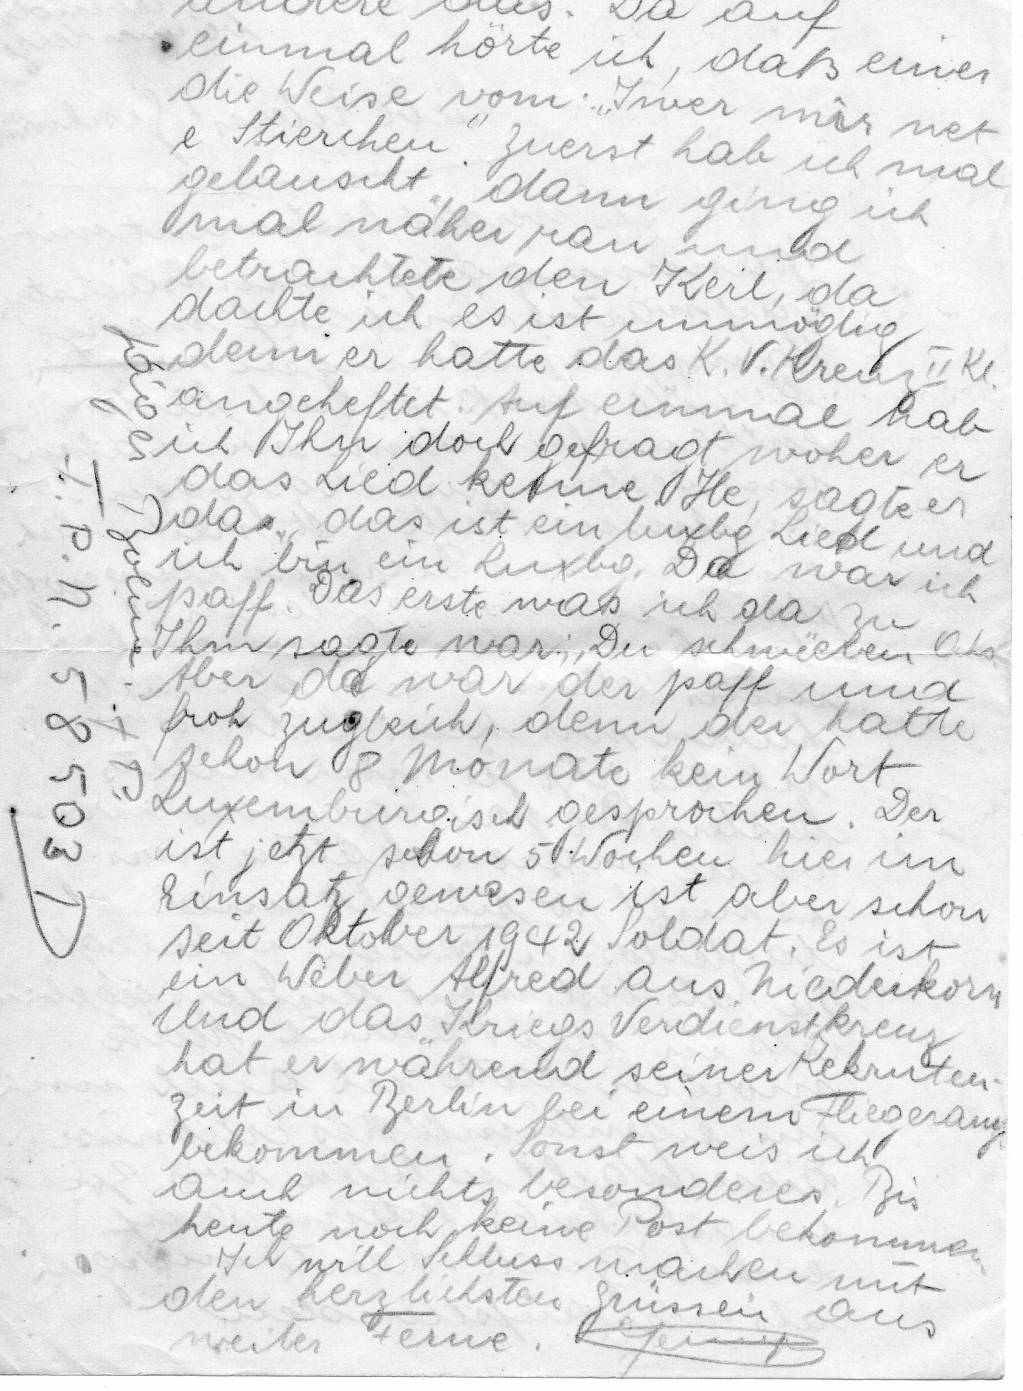 andere aus. Da auf
einmal hörte ich, daß einer
die Weise vom: „Iwer mir net
e Stierchen". Zuerst hab ich mal
gelauscht, dann ging ich
mal näher ran und
betrachtete den Kerl, da
dachte ich es ist unmöglig
denn er hatte das K. V. Kreuz II Kl.
angeheftet. Auf einmal hab
ich Ihn doch gefragt woher er
das Lied kenne. He, sagte er
das, das ist ein luxbg Lied und
ich bin ein Luxbg. Da war ich
paff. Das erste was ich da zu
Ihm sagte war: „Du
Aber da war der paff und
froh zugleich, denn der hatte
schon 8 Monate kein Wort
Luxemburgisch gesprochen. Der
ist jetzt schon 5 Wochen hier im
Einsatz gewesen ist aber schon
seit Oktober 1942 Soldat. Es ist
ein Weber Alfred aus Niederkorn
Und das Kriegs Verdienstkreuz
hat er während seiner Rekruten-
zeit in Berlin bei einem Fliegerang
bekommen. Sonst weis ich
auch nichts besonderes. Bis
heute noch keine Post bekommen
Ich will Schluss machen mit
den herzlichsten Grüssen aus
weiter Ferne.
F. P. N. 58503 D